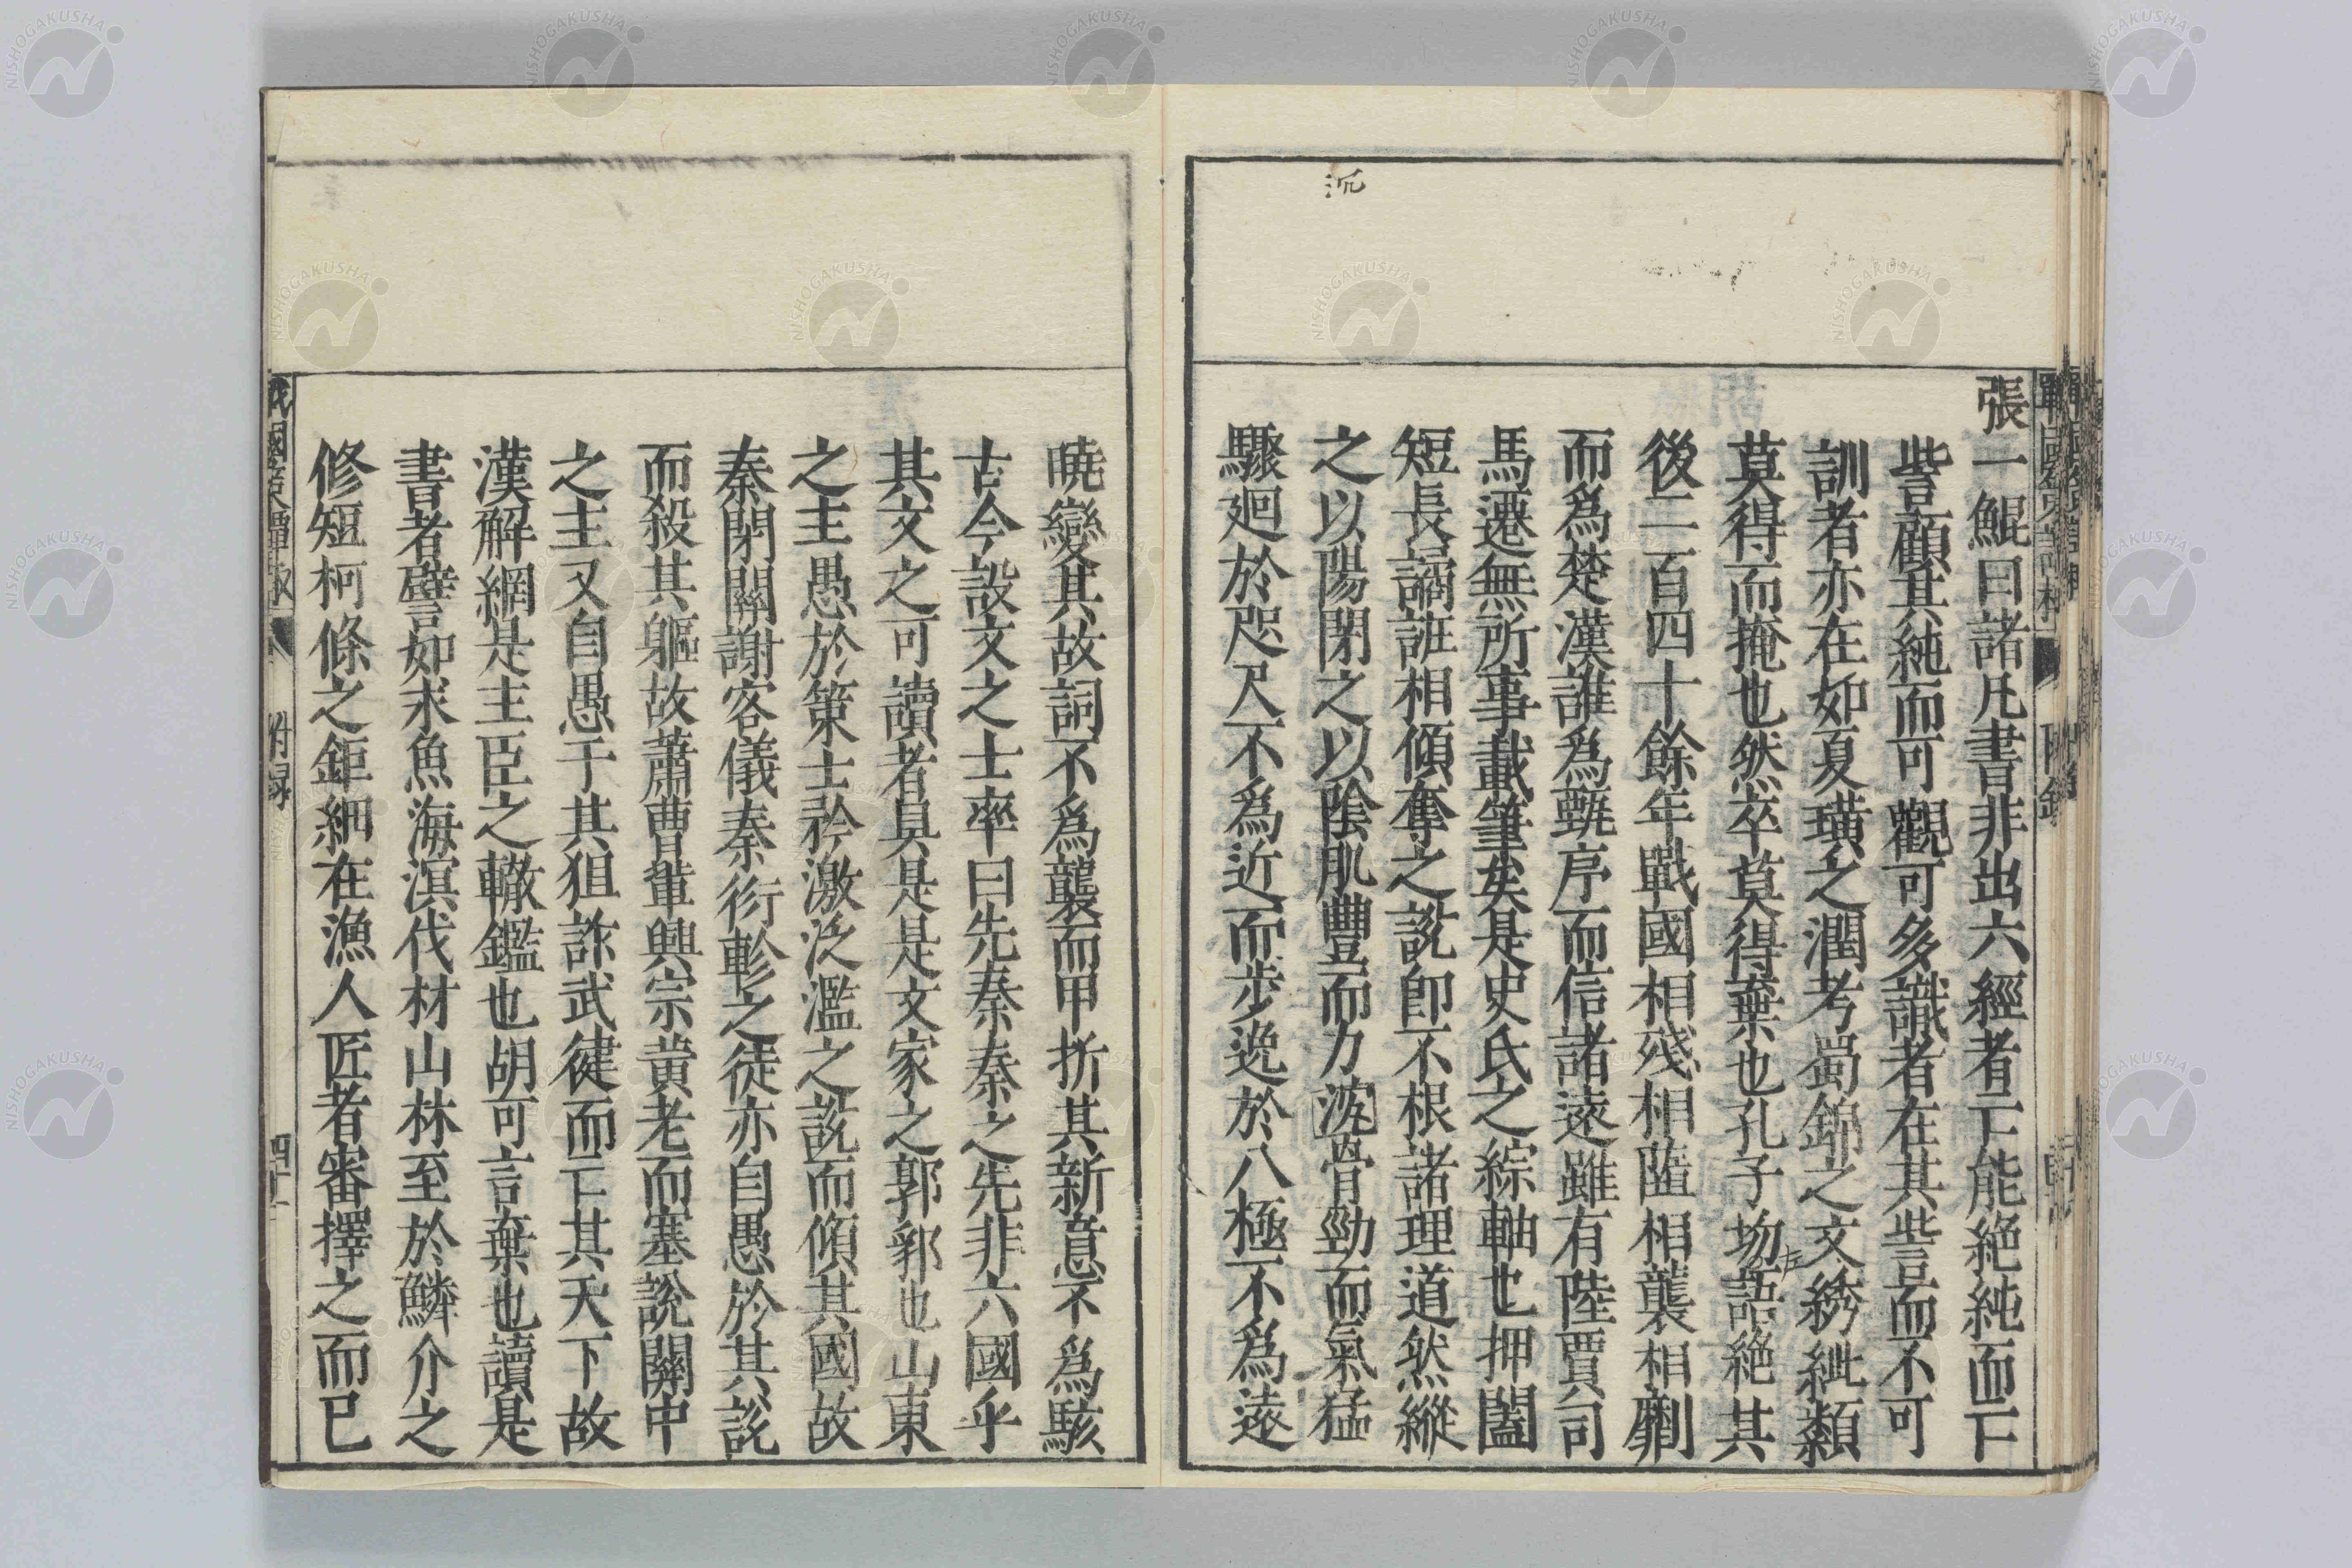 沉
張一鯤曰諸凡書非出六經者亡能絶純而亡
訾顧其純而可觀可多識者在其訾而不可
訓者亦在如夏璜之潤考蜀錦之文綉紕纇
莫得而掩也然卒莫得棄也孔子歾語絶其
後二百四十餘年戰國相殘相藍相襲相劘
而爲楚漢誰爲甄序而信諸遠雖有陸賈司
馬遷無所事載筆矣是史氏之綜軸也押闔
短長譎誑相傾奪之說卽不根諸理道然縱
之以陽閉之以陰肌豐而力沈骨勁而氣猛
驟廻於咫尺不為近而步逸於八極不為遠
曉變其故詞不爲襲而甲折其新意不爲駭
古今設文之士率曰先秦秦之先非六國乎
其文之可讀者具是是文家之郛郭也山東
之主愚於策士矜激泛濫之說而傾其國故
秦閉關謝客儀秦衍軫之徒亦自愚於其說
而殺其軀故蕭曹輩興宗黄老而塞說關中
之主又自愚于其狙詐武健而亡其天下故
漢解網是主臣之轍鑑也胡可言棄也讀是
書者譬如求魚海溟伐材山林至於鱗介之
修短柯條之鉅細在漁人匠者審擇之而已
戰國策譚棷
附録
四十二